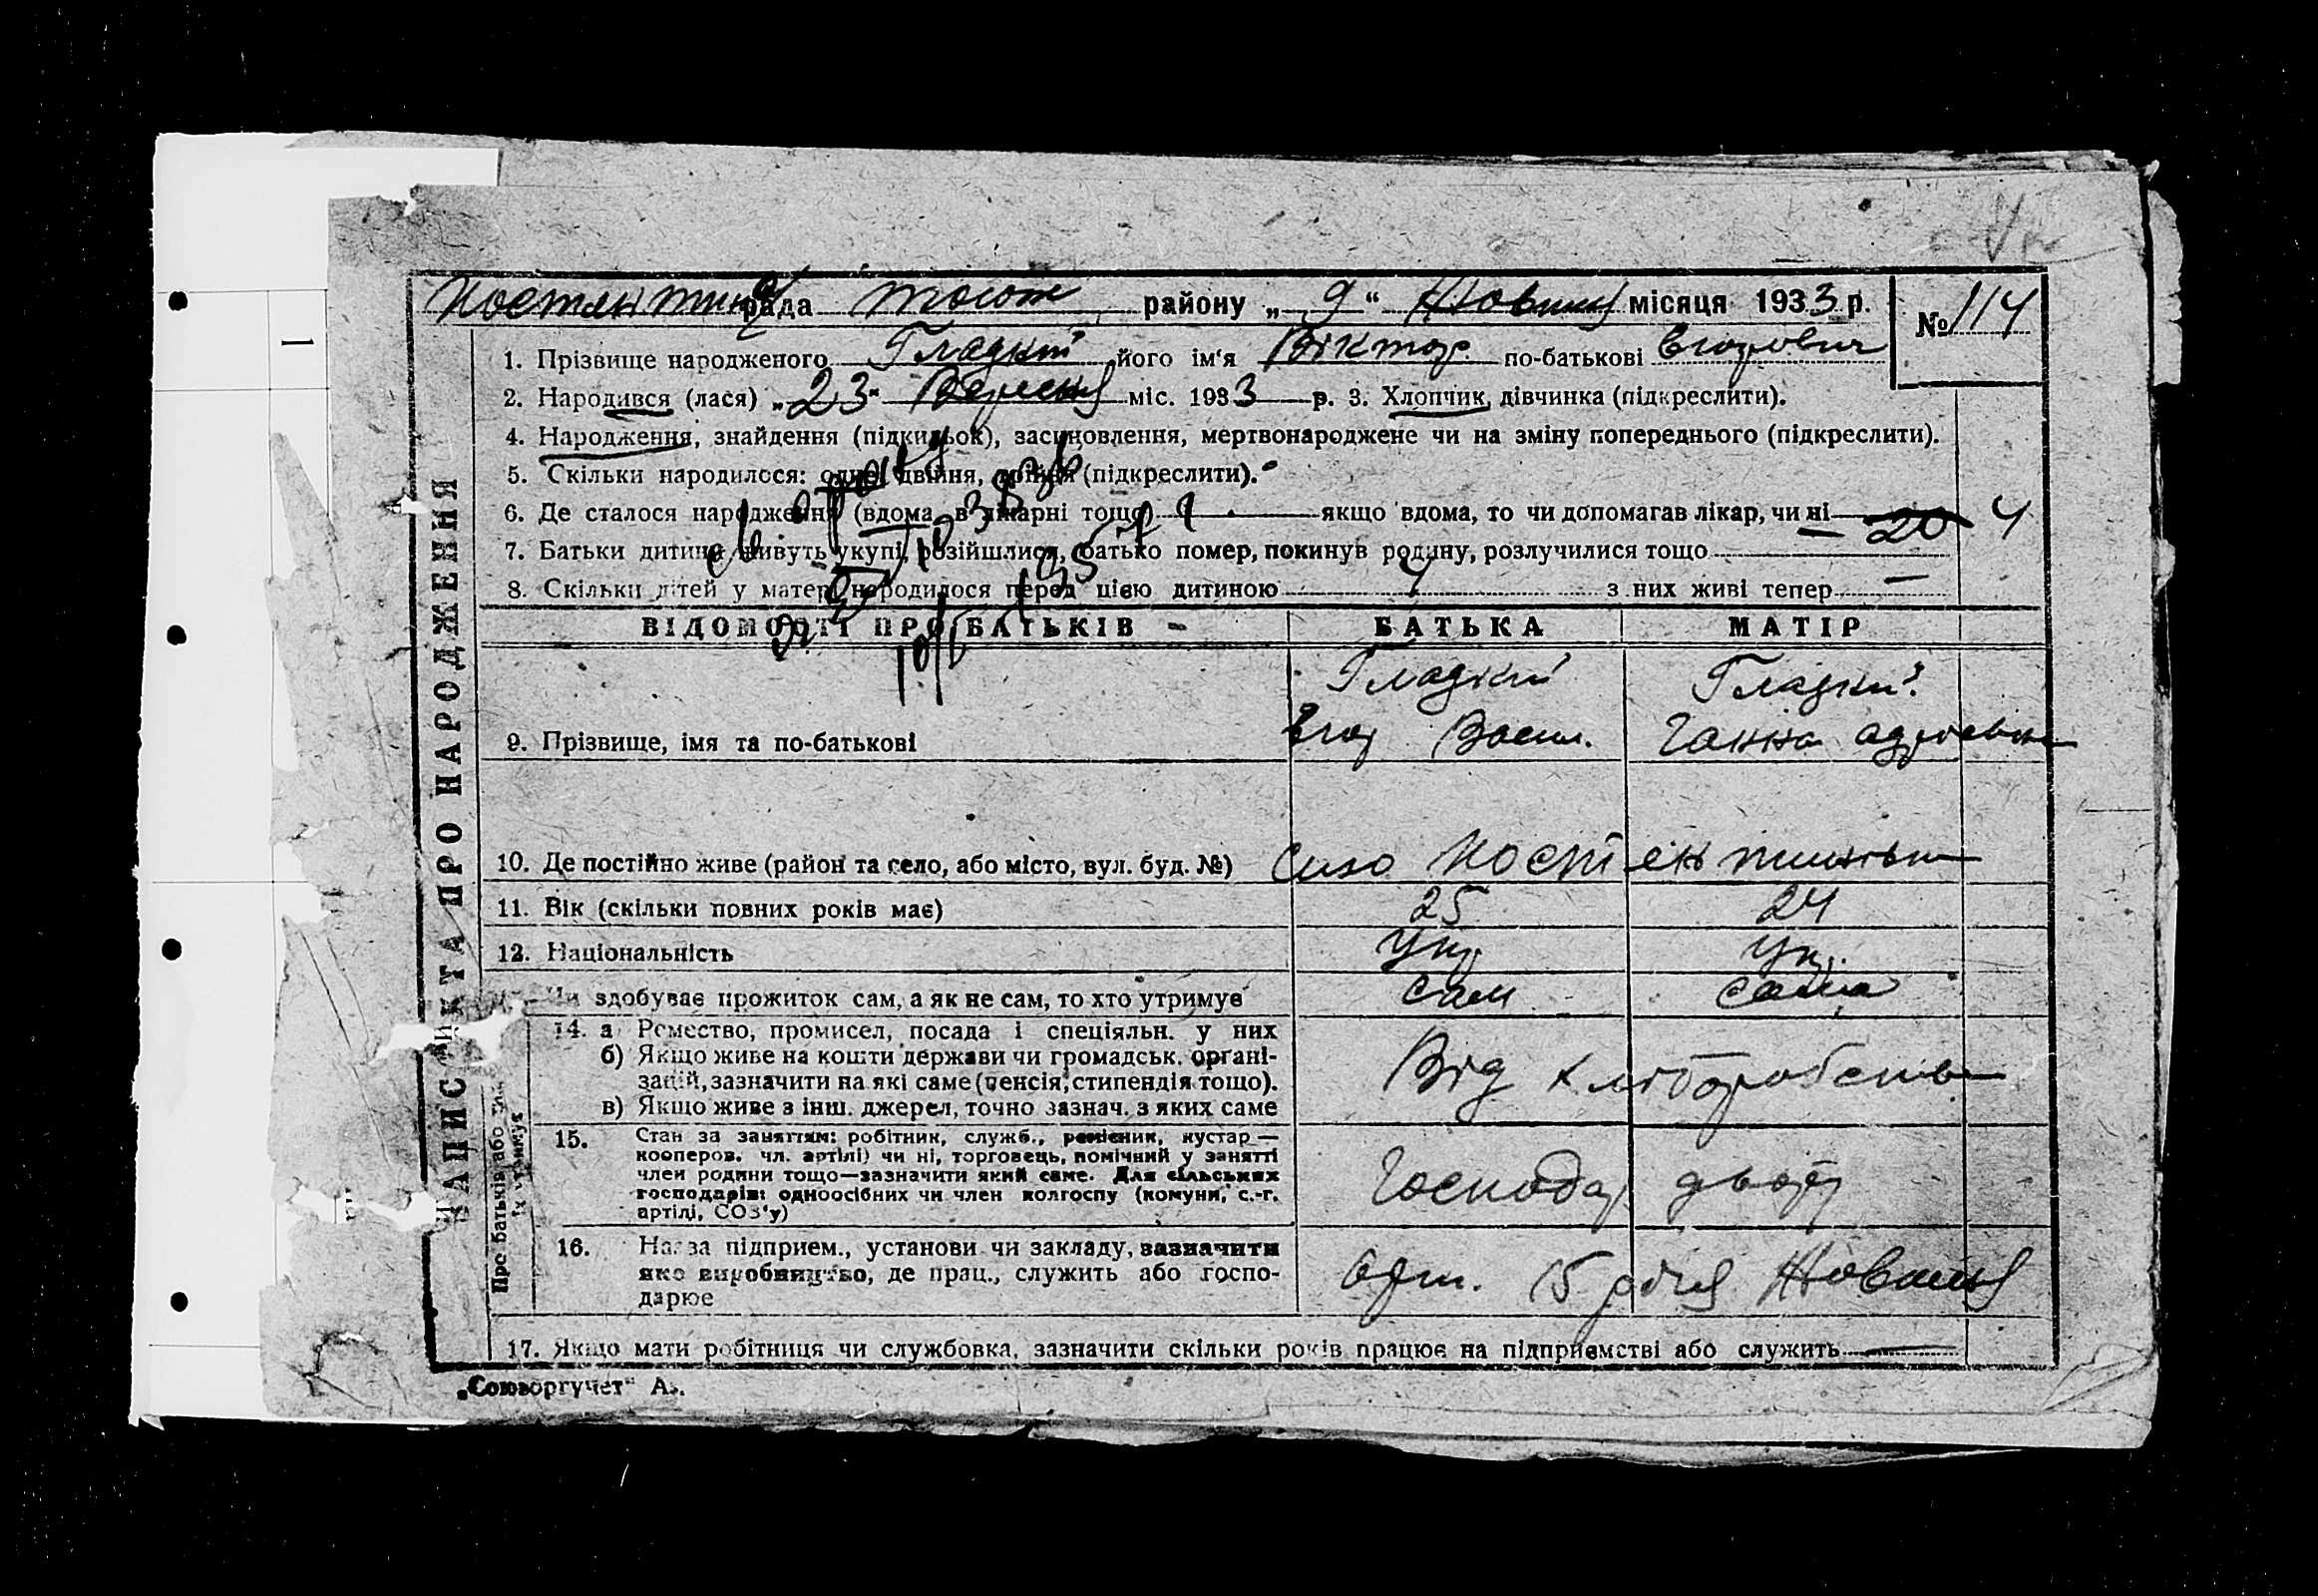 Костянтин рада району „9“ Жовтня місяця 1933 р. №114
1. Прізвище народженого Гладкий його ім'я Віктор по-батькові Єгорович
2. Народився (лася) „23“ Вересня міс. 1933 р. 3. Хлопчик, дівчинка (підкреслити).
4. Народження, знайдення (підкидьок), засиновлення, мертвонароджене чи на зміну попереднього (підкреслити).
5. Скільки народилося: одне, двійня, трійня (підкреслити).
6. Де сталося народження (вдома, в лікарні тощо) якщо вдома, то чи допомагав лікар, чи ні 20 4
7. Батьки дитини живуть укупі, розійшлися, батько помер, покинув родину, розлучилися тощо
8. Скільки дітей у матері народилося перед цією дитиною 4 з них живі тепер —
ВІДОМОСТІ ПРО БАТЬКІВ БАТЬКА МАТІР
Гладкий Гладкий
9. Прізвище, імя та по-батькові Єгор Васил. Ганна
10. Де постійно живе (район та село, або місто, вул. буд. №) Село
11. Вік (скільки повних років має) 25 24
12. Національність Укр. Укр.
Чи здобуває прожиток сам, а як не сам, то хто утримує сам сама
14. а Ремество, промисел, посада і спеціяльн. у них
б) Якщо живе на кошти держави чи громадськ. органі-
зацій, зазначити на які саме (пенсія, стипендія тощо).
в) Якщо живе з інш. джерел, точно зазнач. з яких саме
Від хліборобства
15. Стан за заняттям: робітник, служб., ремісник, кустар —
кооперов. чл. артілі) чи ні, торговець, помічний у занятті
член родини тощо—зазначити який саме. Для сільських
господарів: одноосібних чи член колгоспу (комуни, с.-г.
артілі, СОЗ'у)
Господар двору
16. Назва підприєм., установи чи закладу, зазначити
яке виробництво, де прац., служить або госпо-
дарює
арт. 15 річчя Жовтня
17. Якщо мати робітниця чи службовка, зазначити скільки років працює на підприємстві або служить —
„Союзоргучет“
ЗАПИС АКТА ПРО НАРОДЖЕННЯ
Про батьків або
їх утримує
1